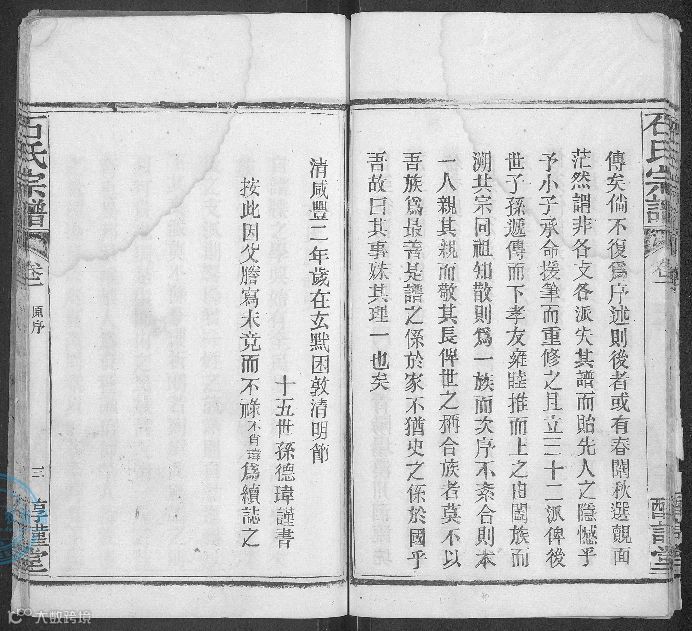 傳矣倘不復爲序述則後者或有春闈秋選覿面
茫然謂非各支各派失其譜而貽先人之隱憾乎
予小子承命援筆而重修之且立三十二派俾後
世子孫遞傳而下孝友雍睦推而上之由闔族而
溯其宗同祖知散則爲一族而次序不紊合則本
一人親其親而敬其長俾世之稱合族者莫不以
吾族爲最善是譜之係於家不猶史之係於國乎
吾故曰其事殊其理一也矣
石氏宗譜 卷一
清咸豐二年歲在玄黓困敦清明節
十五世孫德瑋謹書
按此因父謄寫未竟而不祿不肖瑋爲續誌之
石氏宗譜 卷一 原序 三 淳謹堂
大數跨境